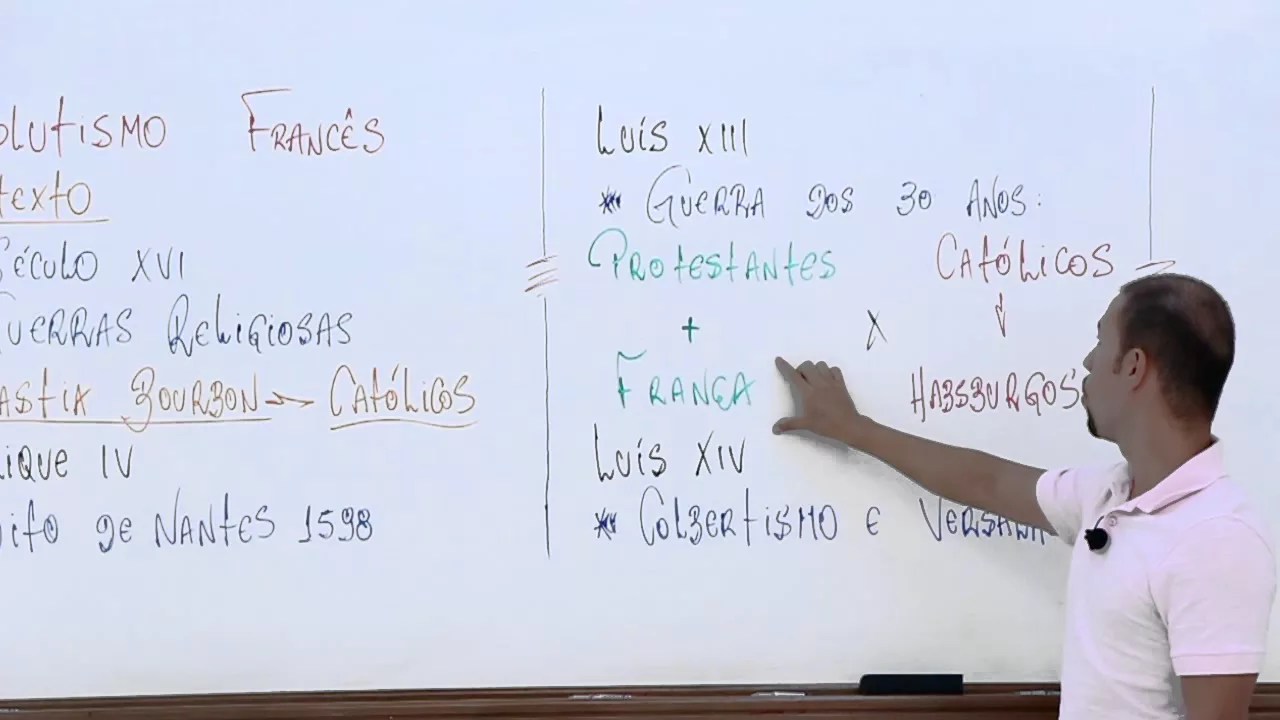 olutismo Francês
texto
Século XVI
Guerras Religiosas
astia Bourbon → Católicos
ique IV
ito de Nantes 1598
Luís XIII
* Guerra dos 30 anos:
Protestantes Católicos
+ X ↓
França Habsburgos
Luís XIV
* Colbertismo e Versa